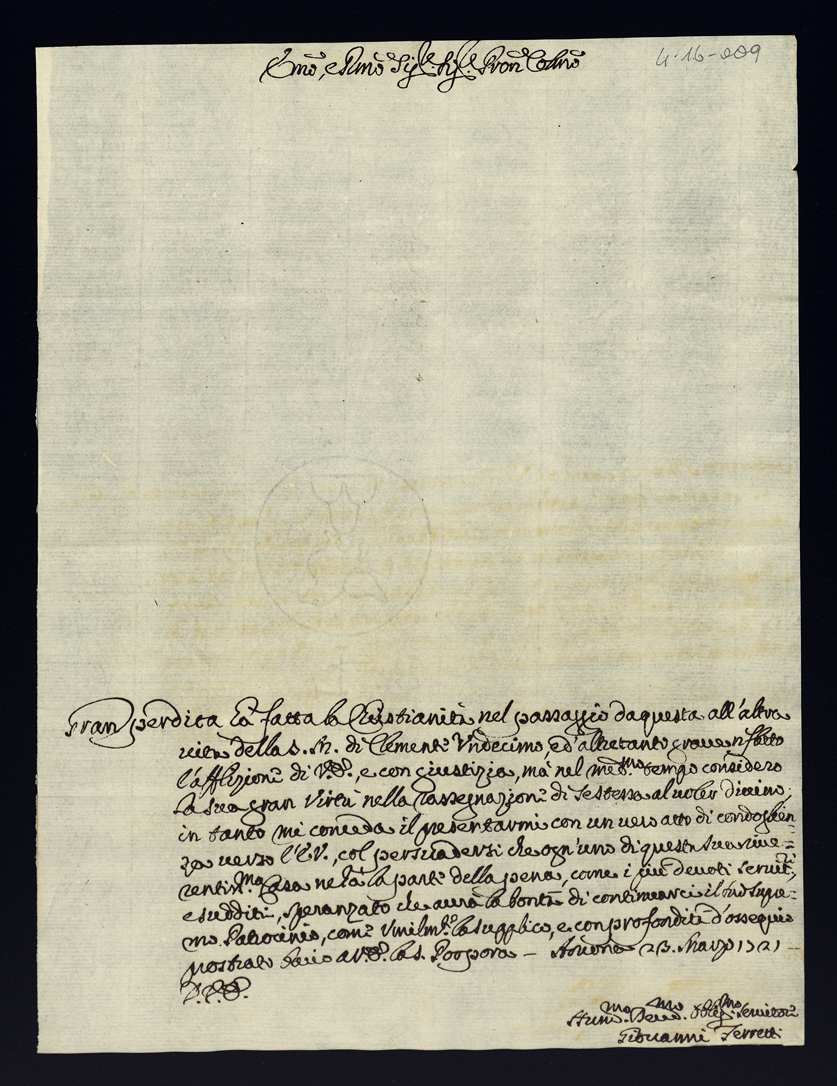 Emo, e Rmo Sigre Sigre Pron Colmo
4-16-209
Gran perdita hà fatta la Christianità nel passaggio da questa all'altra
vita della S. M. di Clemente Undecimo, ed altretanto grave rifletto
l'afflizione di V. E., e con giustizia, mà nel medmo tempo considero
la sua gran Virtù nella rassegnazione di se stessa al voler Divino;
in tanto mi conceda il presentarmi con un vero atto di condoglien-
za verso l'E. V., col persuadersi che ogn'uno di questa sua rive=
rentissma Casa ne hà la parte della pena, come i più devoti servitri,
e sudditi, speranzato che avrà la bontà di continuarci il suo supre=
mo Patrocinio, come Umilmte la supplico, e con profondità d'ossequio
prostrato bacio a V. E. la S. Porpora – 23. Marzo 1721 –
D. V. E.
Hummo Devmo Obligmo Servitore
Giovanni Ferretti